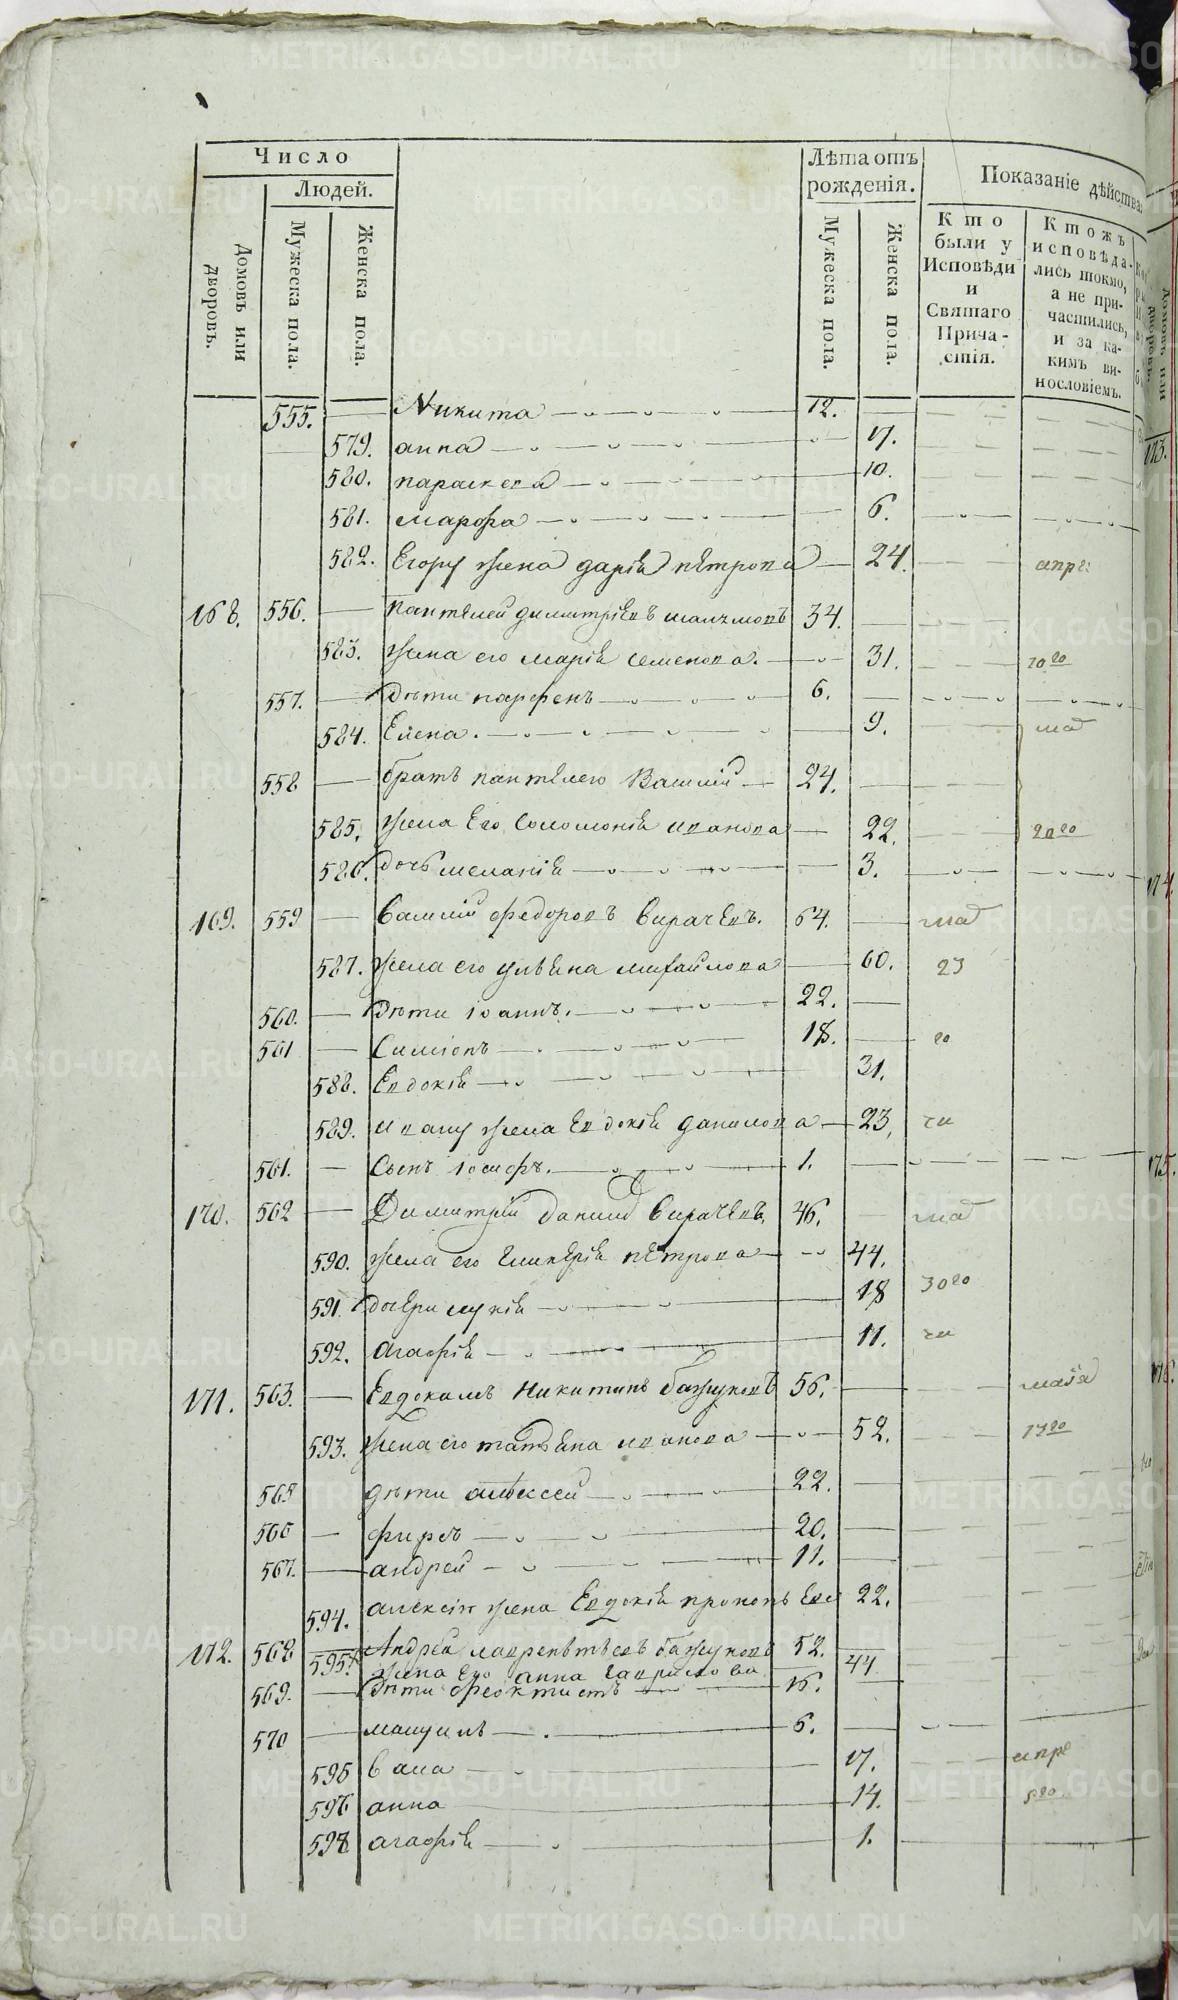 Число
Людей.
Домовъ или дворовъ.
Мужеска пола.
Женска пола.
Лѣта отъ рожденія.
Мужеска пола.
Женска пола.
Показаніе дѣйства
Кто были у Исповѣди и Святаго Причастія.
Ктожъ исповѣдались токмо, а не причастились, и за какимъ винословіемъ.
555. Никита 12.
579. анна 17.
580. параскева 10.
581. марфа 6.
582. Егору жена дарія петрова 24. апре
168. 556. пантелей димитріевъ 34.
583. жена его марія семенова. 31. 20го
557. Дѣти парфенъ 6.
584. Елена. 9. маа
558 братъ пантелею Василій 24.
585. жена Его Соломонія иванова 22. 20го
586. дочь меланія 3.
169. 559 Василій федоровъ Сирачевъ. 64. маа
587. жена его ульяна михайлова 60. 23
560. Дѣти іоаннъ. 22.
561 Симіонъ 18. го
588. Евдокія 31.
589. ивану жена Евдокія данилова 23. чи
561. Сынъ іосифъ. 1.
170. 562 Димитрій данилов Сирачевъ 46. маа
590. жена его гликерія петрова 44.
591. дочери лукія 18 30го
592. агафія 11. чи
171. 563. Евдокимъ Никитинъ бажуковъ 56. маіа
593. жена его татьяна иванова 52. 13го
565 дѣти алексей 22.
566 фирсъ 20.
567. андрей 11.
594. алексію жена Евдокія 22.
172. 568 Андрей лаврентьевъ бажуковъ 52.
595. жена Его анна гаврилова 44
569. Дѣти феоктистъ 16.
570 мануилъ 6.
595 17. апре
596 анна 14.
598 агафія 1.
173.
174.
175.
176.
METRIKI.GASO-URAL.RU